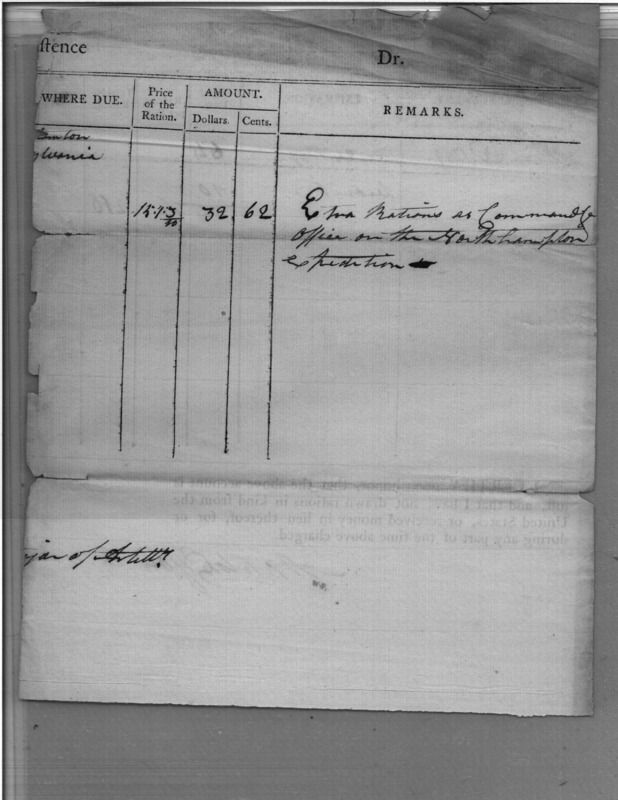 ſtence Dr.
WHERE DUE. Price of the Ration. AMOUNT. Dollars. Cents. REMARKS.
ylvania
32 62 Extra Rations as Command.g
Officer on the Northhampton
Expedition
jor of Artill.y
I CERTIFY, upon honor, that the above account is
juſt, and that I have not drawn rations in kind from the
United States, or received money in lieu thereof, for or
during any part of the time above charged.